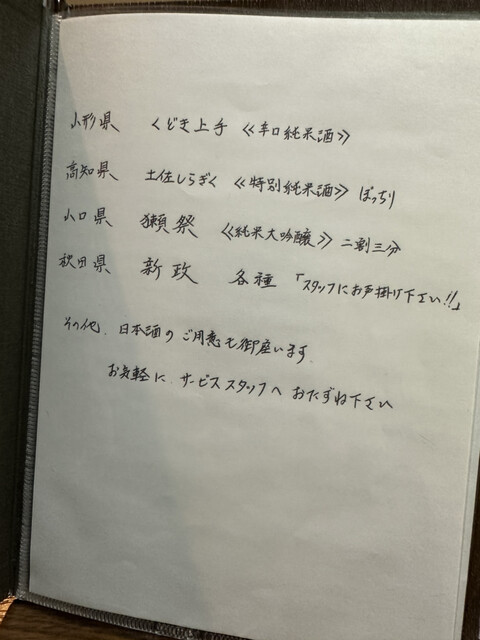 山形県 くどき上手 《辛口純米酒》
高知県 土佐しらぎく 《特別純米酒》 ぽっちり
山口県 獺祭 《純米大吟醸》 二割三分
秋田県 新政 各種 「スタッフにお声掛け下さい!!」
その他、日本酒のご用意も御座います。
お気軽に、サービススタッフへおたずね下さい